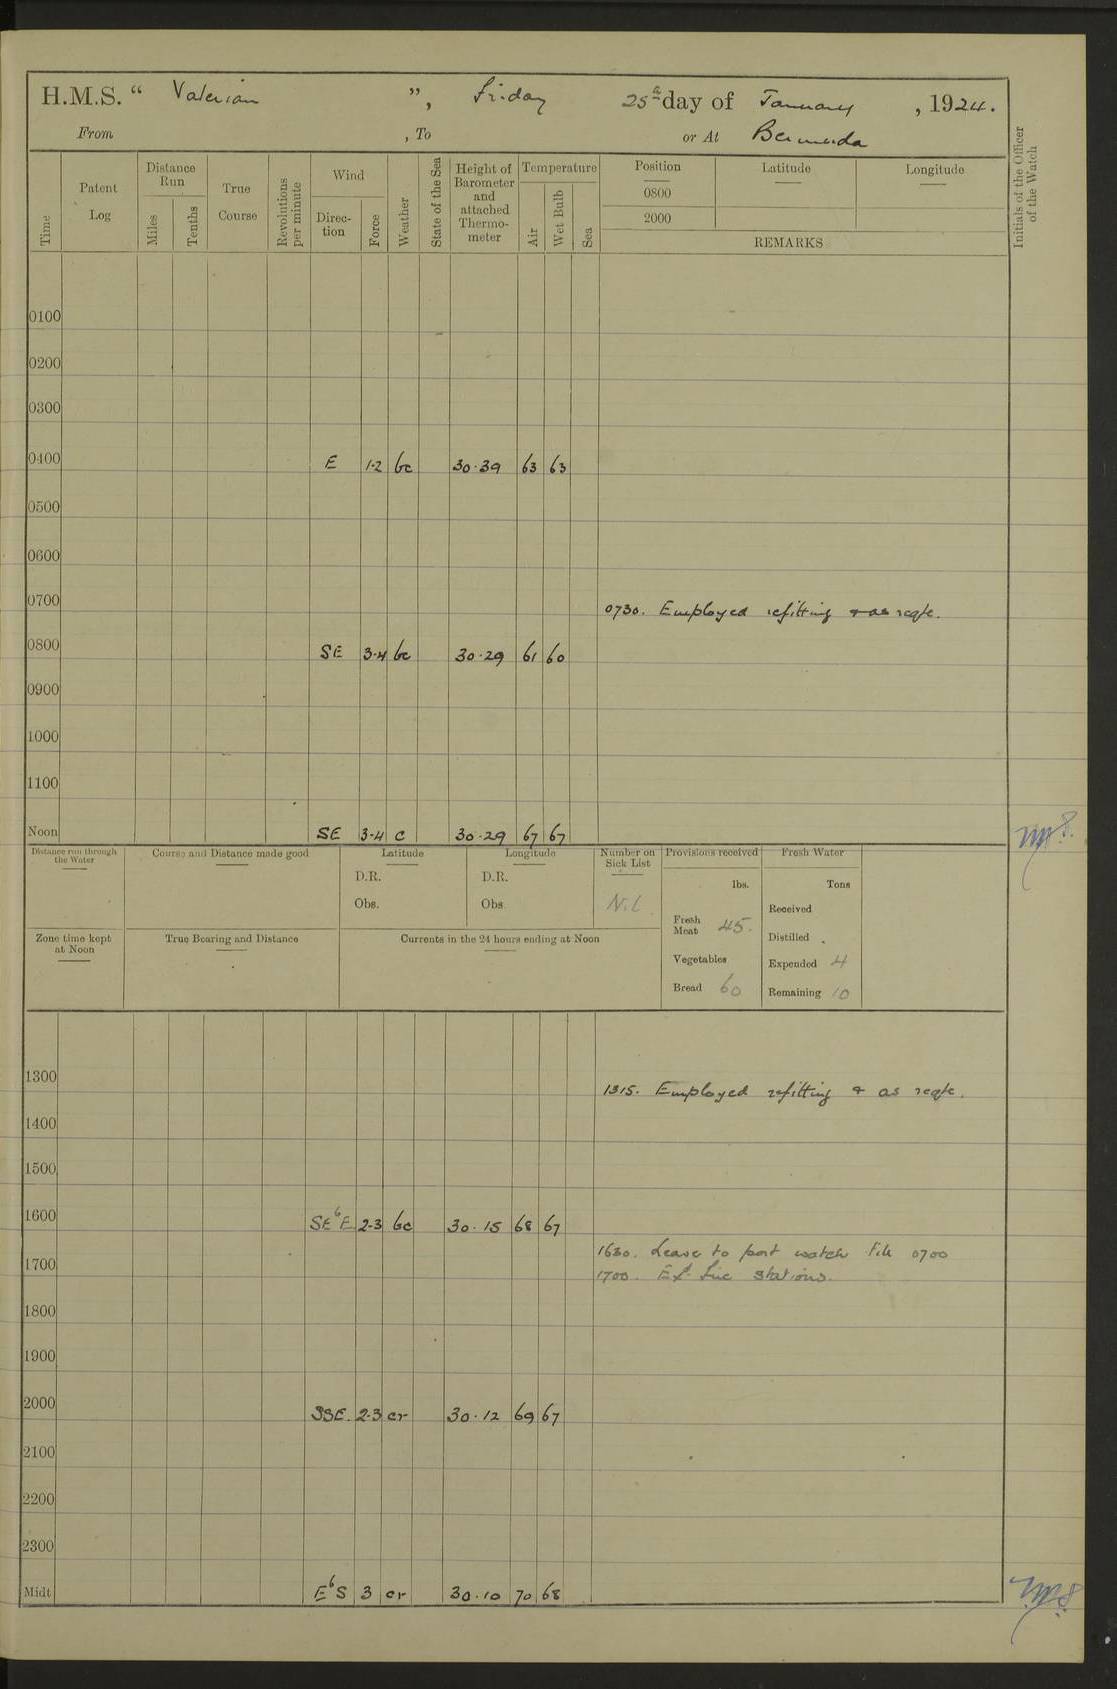 H.M.S. “ Valerian ”, Friday 25th day of January, 1924.
From , To or At Bermuda
Time
Patent Log
Distance Run
Miles
Tenths
True Course
Revolutions per minute
Wind
Direc-tion
Force
Weather
State of the Sea
Height of Barometer and attached Thermo-meter
Temperature
Air
Wet Bulb
Sea
Position
Latitude
Longitude
0800
2000
REMARKS
Initials of the Officer of the Watch
0100
0200
0300
0400 E 1-2 bc 30.39 63 63
0500
0600
0700 0730. Employed refitting & as reqte.
0800 SE 3-4 bc 30.29 61 60
0900
1000
1100
Noon SE 3-4 c 30.29 67 67
Distance run through the Water
Course and Distance made good
Latitude
D.R.
Obs.
Longitude
D.R.
Obs.
Number on Sick List
Nil
Provisions received
lbs.
Fresh Meat 45.
Vegetables
Bread 60
Fresh Water
Tons
Received
Distilled
Expended 4
Remaining 10
Zone time kept at Noon
True Bearing and Distance
Currents in the 24 hours ending at Noon
1300 1315. Employed refitting & as reqte.
1400
1500
1600 SEbE 2-3 bc 30.15 68 67
1630. Leave to port watch till 0700
1700 1700. Ex. fire stations.
1800
1900
2000 SSE. 2-3 cr 30.12 69 67
2100
2200
2300
Midt EbS 3 cr 30.10 70 68